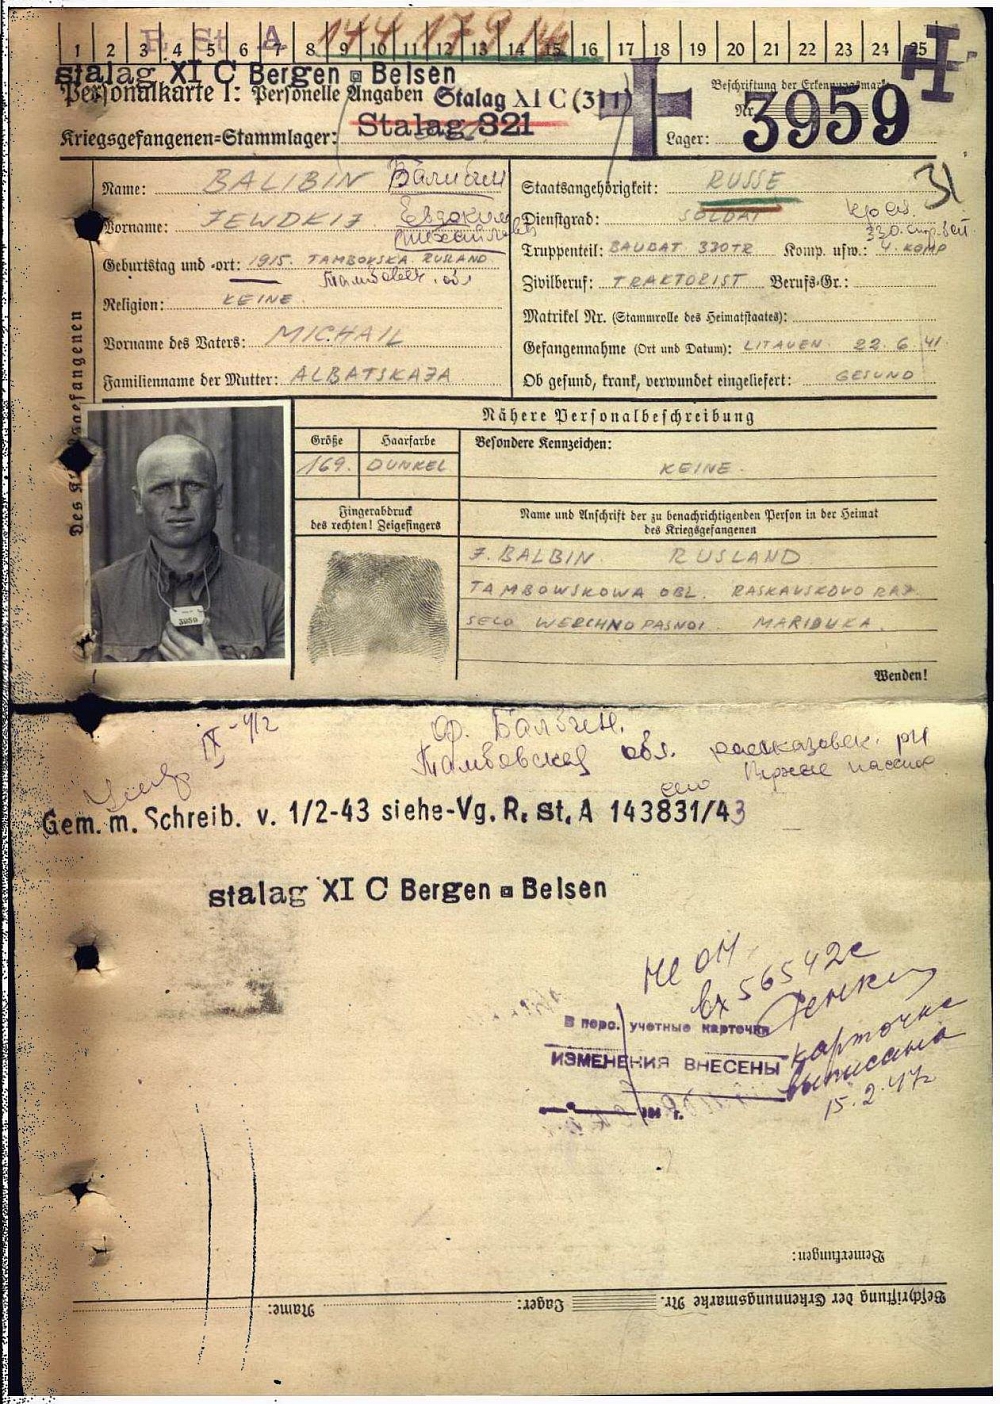 1 2 3 4 5 6 7 8 9 10 11 12 13 14 15 16 17 18 19 20 21 22 23 24 25
R. St. A 144 179
stalag XI C Bergen Belsen
Personalkarte I: Personelle Angaben Stalag XI C (311)
Beschriftung der Erkennungsmarke
Nr. 3959
Kriegsgefangenen-Stammlager: Stalag 321 Lager:
31
Des Kriegsgefangenen
Name: BALIBIN Балибин
Vorname: JEWDKIJ Евдоким
Михайлов
Geburtstag und -ort: 1915. TAMBOWSKA RUSLAND
Тамбовск. обл
Religion: KEINE
Vorname des Vaters: MICHAIL
Familienname der Mutter: ALBATSKAJA
Staatsangehörigkeit: RUSSE
Dienstgrad: SOLDAT
Truppenteil: BAUBAT 330TR Komp. usw.: 4. KOMP
Zivilberuf: TRAKTORIST Berufs-Gr.:
Matrikel Nr. (Stammrolle des Heimatstaates):
Gefangennahme (Ort und Datum): LITAUEN 22.6.41
Ob gesund, krank, verwundet eingeliefert: GESUND
Nähere Personalbeschreibung
Größe Haarfarbe Besondere Kennzeichen:
169. DUNKEL KEINE
Fingerabdruck
des rechten! Zeigefingers
Name und Anschrift der zu benachrichtigenden Person in der Heimat
des Kriegsgefangenen
J. BALBIN RUSLAND
TAMBOWSKOWA OBL. RASKAUSKOVO RAJ.
SELO WERCHNOPASNOI MARIDUKA
3959
Wenden!
IX-42
Ф. Балбин.
Тамбовская обл. рассказовск. рн
село
Gem. m. Schreib. v. 1/2-43 siehe-Vg. R. St. A 143831/43
stalag XI C Bergen Belsen
не он
вх 56542с
В перс. учетные карточки
ИЗМЕНЕНИЯ ВНЕСЕНЫ
карточка
выписана
15.2.47г
194 г.
Bemerkungen:
Beschriftung der Erkennungsmarke Nr. Lager: Name: